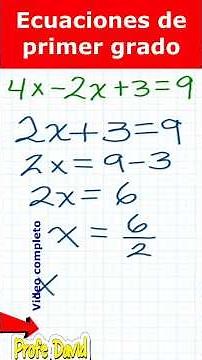 Ecuaciones de
primer grado
4x-2x+3=9
2x+3=9
2x=9-3
2x=6
x=6/2
x
Video completo
Profe David